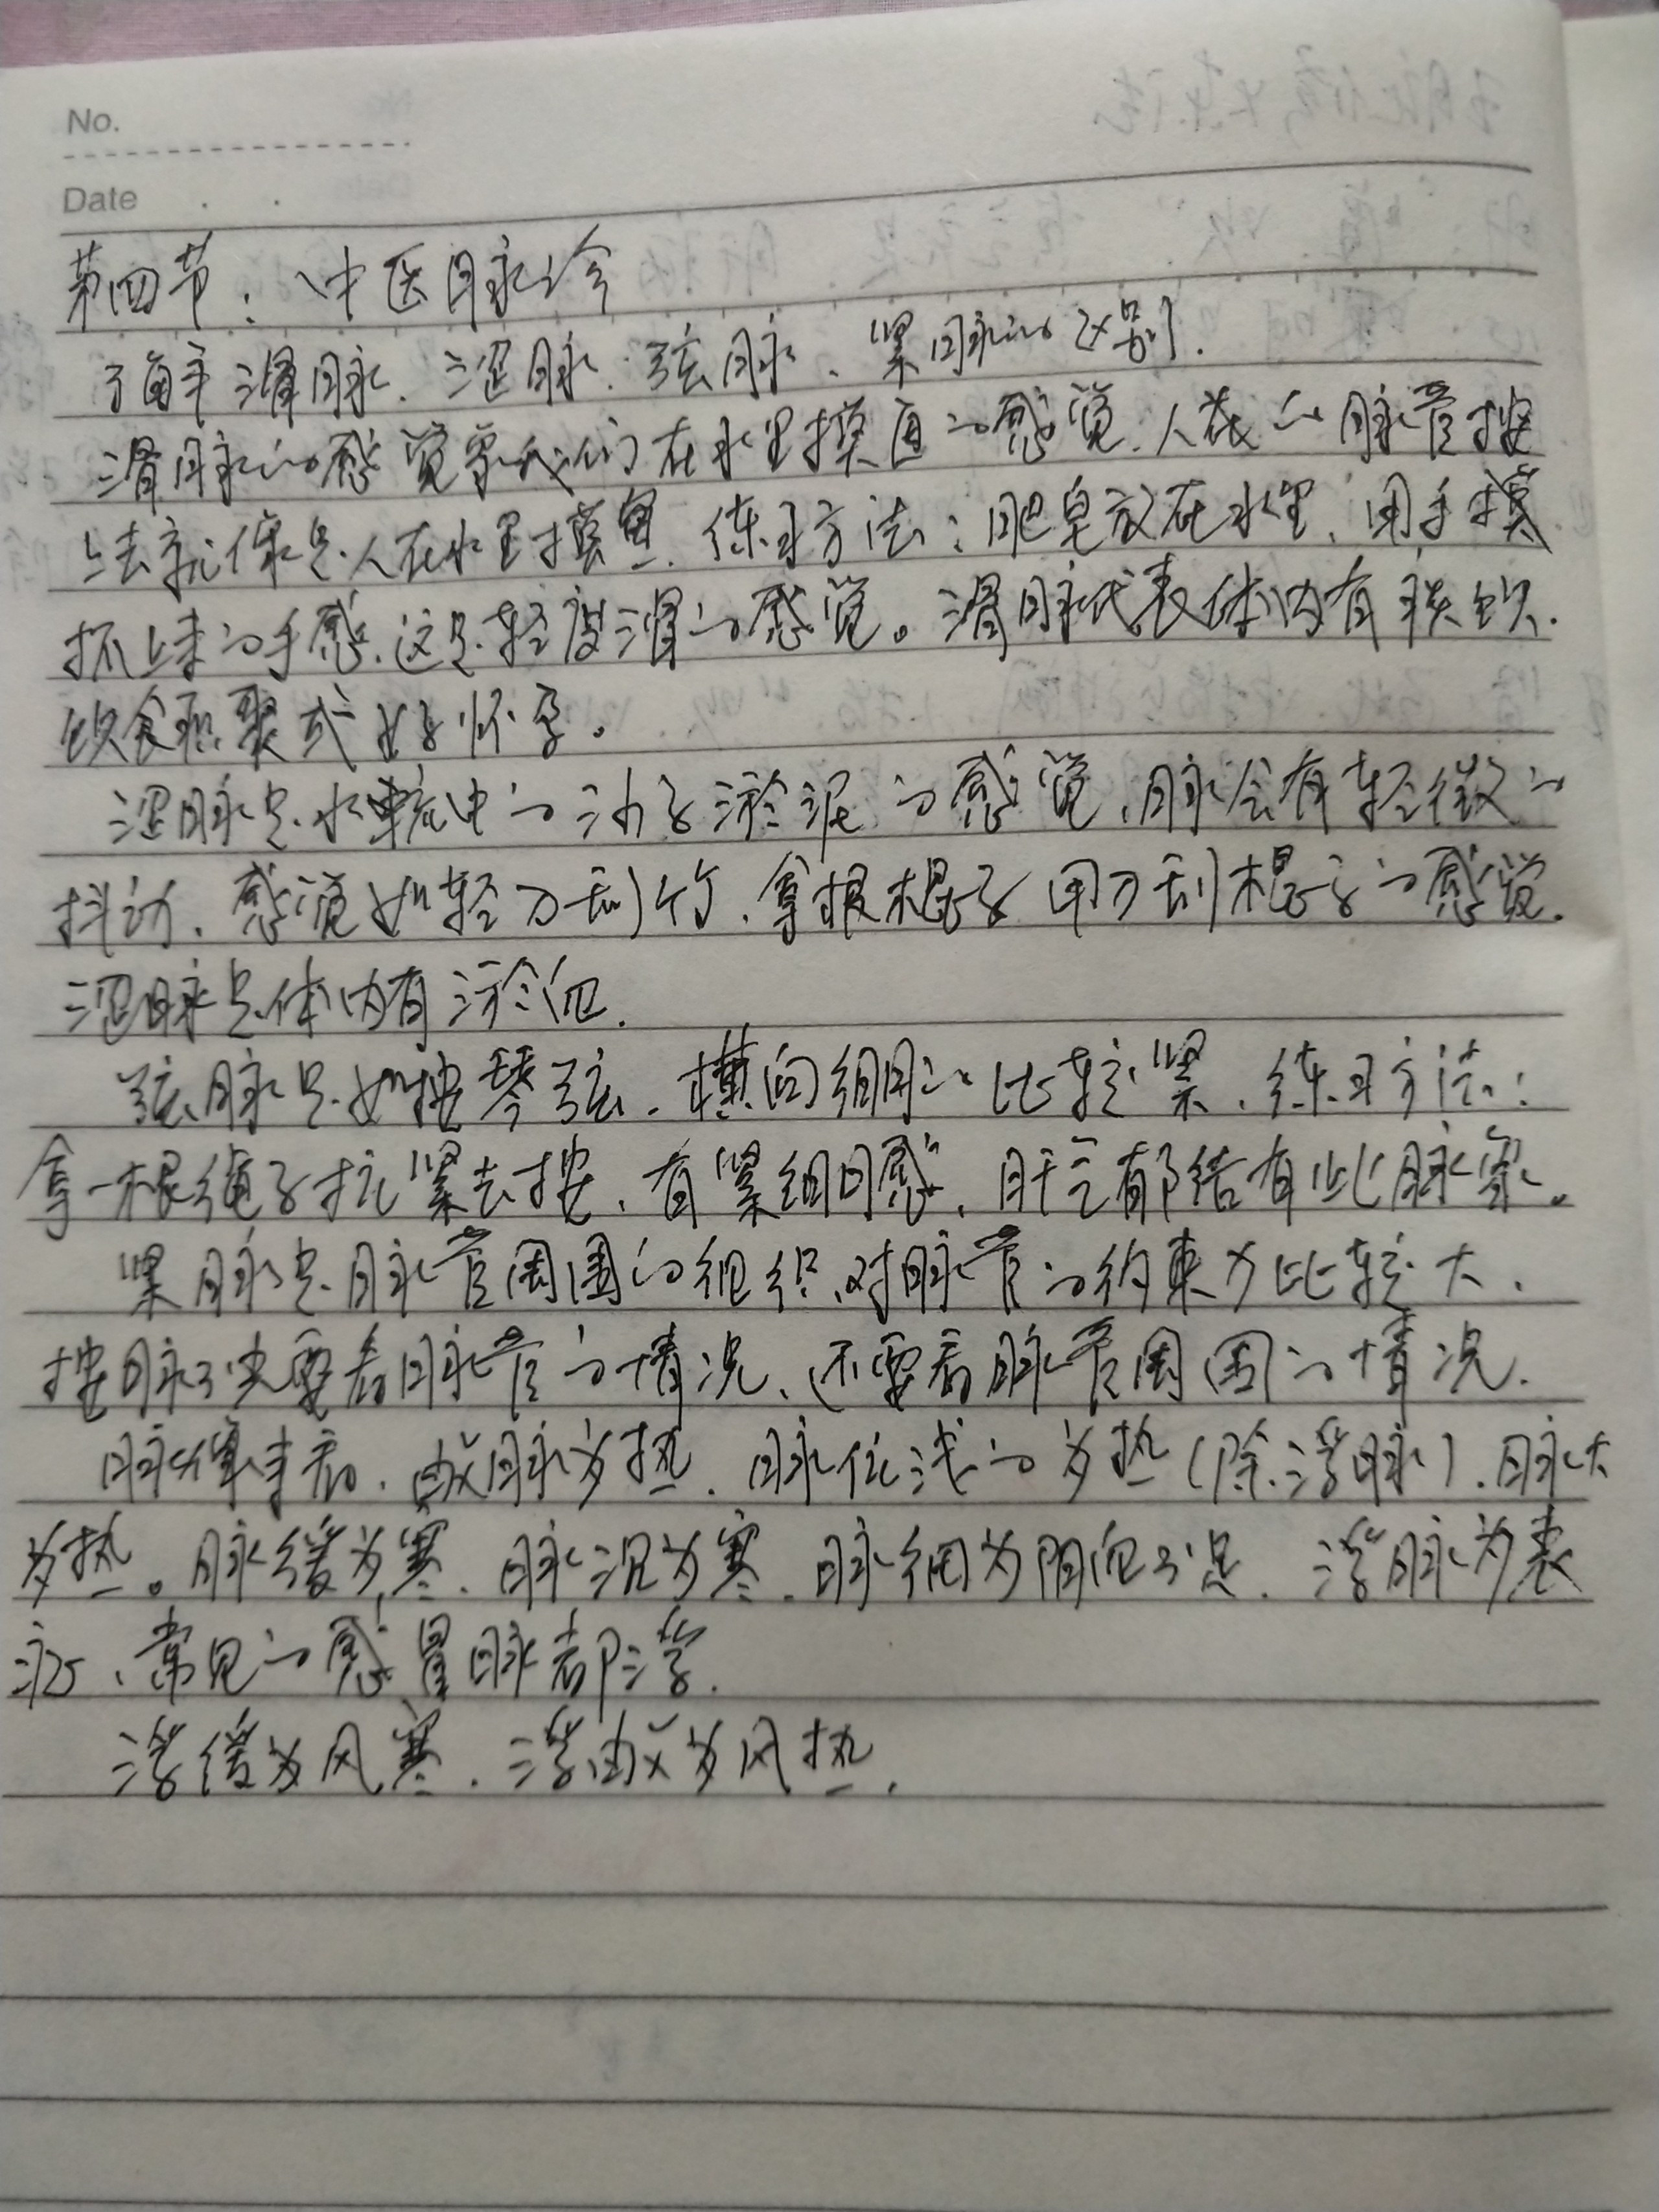 No.
Date
第四节：中医脉诊
了解滑脉、涩脉、弦脉、紧脉的区别.
滑脉的感觉象我们在水里摸鱼的感觉.人很的脉管按
上去就像是人在水里摸鱼.练习方法：肥皂放在水里，用手摸
抓上来的手感.这是轻度滑的感觉。滑脉代表体内有痰饮.
饮食积聚或好怀孕。
涩脉是水流中的沙子淤泥的感觉，脉会有轻微的
抖动、感觉如轻刀刮竹、拿根棍子用刀刮棍子的感觉.
涩脉是体内有淤血.
弦脉是如按琴弦.横向绷的比较紧、练习方法：
拿一根绳子拉紧去按、有紧绷感、肝气郁结有此脉象。
紧脉是脉管周围的组织、对脉管的约束力比较大.
按脉不光要看脉管的情况、还要看脉管周围的情况.
脉单来看、数脉为热、脉位浅的为热(除浮脉).脉大
为热。脉缓为寒、脉沉为寒.脉细为阴血不足.浮脉为表
证、常见的感冒脉都浮.
浮缓为风寒.浮数为风热.